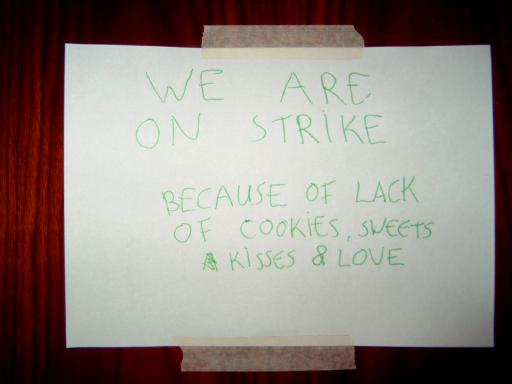 WE ARE
ON STRIKE
BECAUSE OF LACK
OF COOKIES, SWEETS
KISSES & LOVE